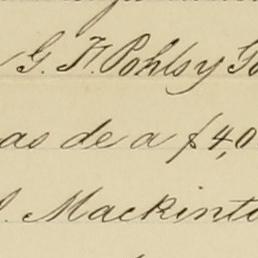 G. F. Pohls y Go
as de a $4,0
. Mackinto